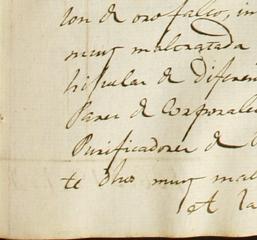 lon de oro falso, in
muy maltratada
hijuelas de diferen
Pares de Corporales
Purificadores de
te dhos muy mal